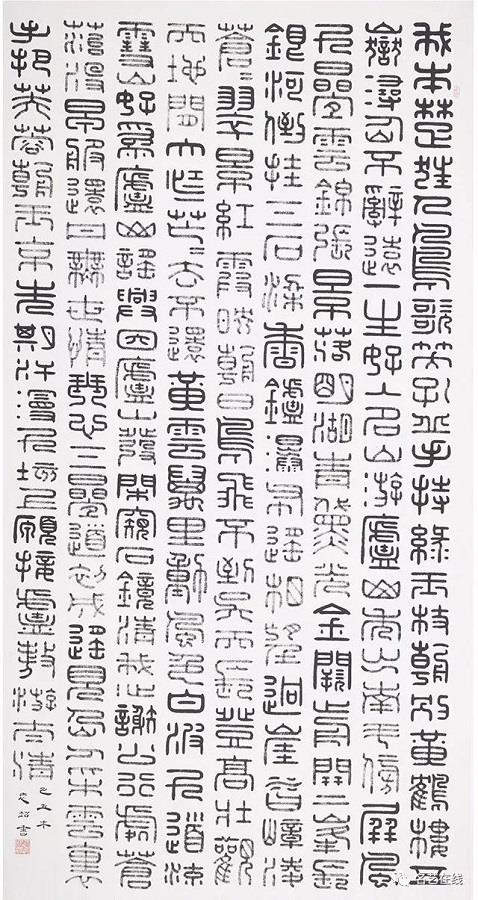 我本楚狂人鳳歌笑孔丘手持綠玉杖朝別黃鶴樓五
嶽尋仙不辭遠一生好入名山游廬山秀出南斗傍屏風
九疊雲錦張景落明湖青黛光金闕前開二峰長
銀河倒挂三石梁香鑪瀑布遙相望迴崖沓嶂凌
蒼蒼翠景紅霞映朝日鳥飛不到吳天長登高壯觀
天地間大江茫茫去不還黃雲萬里動風色白波九道流
雪山好為廬山謠興因廬山發閒窺石鏡清我心謝公行處蒼
苔沒早服還丹無世情琴心三疊道初成遙見仙人采雲裏
手把芙蓉朝玉京先期汗漫九垓上願接盧敖游太清
己丑冬
書
名艺在线